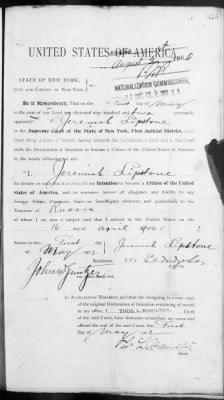 UNITED STATES OF AMERICA
August
NATURALIZATION COMMISSIONER,
STATE OF NEW YORK,
CITY AND COUNTY OF NEW YORK,
Be it Remembered, That on the First May
in the year of our Lord one thousand nine hundred and two personally
appeared Jeremiah Lipstone in the
Supreme Court of the State of New York, First Judicial District, (the
said Court being a Court of Record, having common law jurisdiction, a Clerk and a Seal,) and
made his Declaration of Intention to become a Citizen of the United States of America
in the words following to wit:
"I, Jeremiah Lipstone
do declare on oath that it is my Intention to become a Citizen of the United
States of America, and to renounce forever all allegiance and fidelity to any
foreign Prince, Potentate, State or Sovereignty whatever, and particularly to the
Emperor of Russia
of whom I am now a subject (and that I arrived in the United States on the
16 April
Sworn to this First day of
May 1902 Jeremiah Lipstone
In Attestation Whereof, and that the foregoing is a true copy
of the original Declaration of Intention remaining of record
in my office, I THOS. L. HAMILTON, Clerk
of the said Court, have hereunto subscribed my name and
affixed the seal of the said Court, this First
day of May 1902
Thos. L. Hamilton
Clerk.